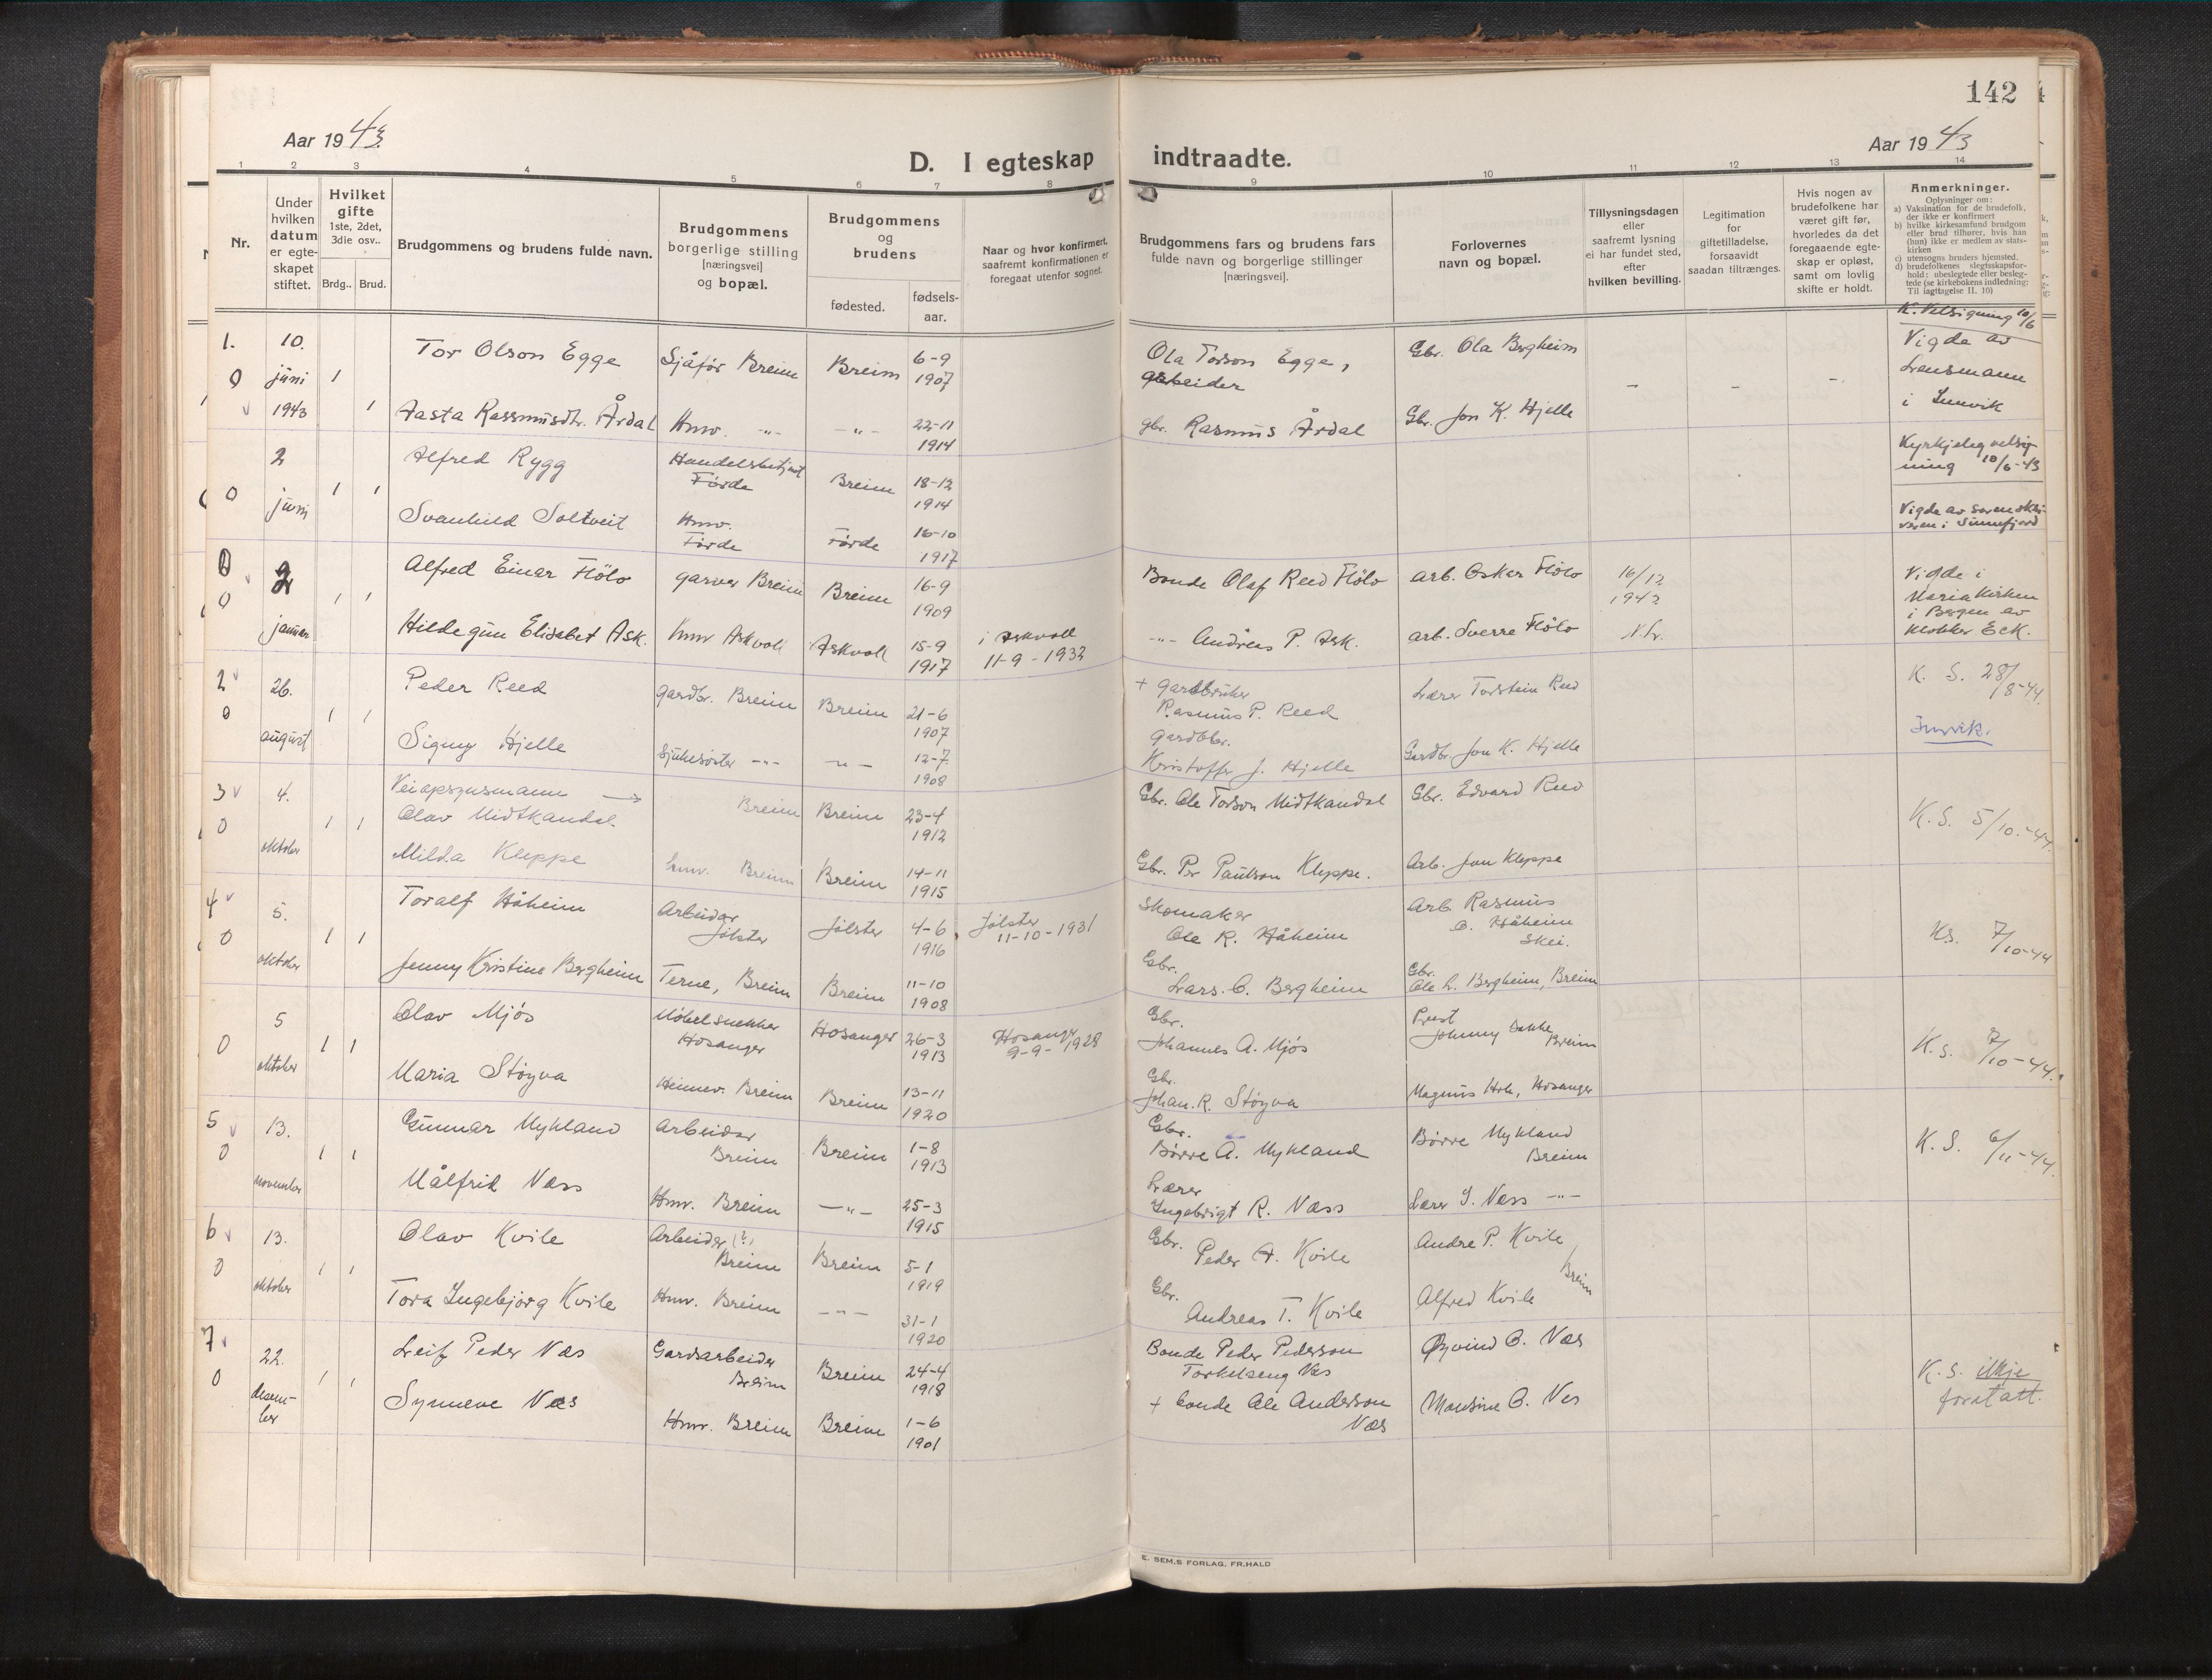 142
Aar 1943
Aar 1943
D. I egteskap indtraadte.
1 2 3 4 5 6 7 8 9 10 11 12 13 14
Nr.
Under hvilken datum er egteskapet stiftet.
Hvilket gifte 1ste, 2det, 3die osv..
Brdg.. Brud.
Brudgommens og brudens fulde navn.
Brudgommens borgerlige stilling [næringsvei] og bopæl.
Brudgommens og brudens
fødested.
fødsels-aar.
Naar og hvor konfirmert, saafremt konfirmationen er foregaat utenfor sognet.
Brudgommens fars og brudens fars fulde navn og borgerlige stillinger [næringsvei].
Forlovernes navn og bopæl.
Tillysningsdagen eller saafremt lysning ei har fundet sted, efter hvilken bevilling.
Legitimation for giftetilladelse, forsaavidt saadan tiltrænges.
Hvis nogen av brudefolkene har været gift før, hvorledes da det foregaaende egteskap er opløst, samt om lovlig skifte er holdt.
Anmerkninger.
Oplysninger om:
a) Vaksination for de brudefolk, der ikke er konfirmert
b) hvilke kirkesamfund brudgom eller brud tilhører, hvis han (hun) ikke er medlem av statskirken
c) utensogns bruders hjemsted.
d) brudefolkenes slegtskapsforhold: ubeslegtede eller beslegtede (se kirkebokens indledning: Til iagttagelse II. 10)
K. Velsigning 10/6
1. 10. Tor Olson Egge Sjåfør Breim Breim 6-9 1907 Ola Torson Egge, arbeider Gbr. Ola Bergheim Vigde av
0 juni 1 - - - Lensmann
1943 1 Aasta Rassmusdtr. Årdal Hmv. -"- -"- 22-11 1914 gbr. Rasmus Årdal Gbr. Jon K. Hjelle i
2 Alfred Rygg Førde Breim 18-12 1914 Kyrkjeleg velsigning 10/6-43
0 juni 1 1
Svanhild Soltveit Hmv. Førde Førde 16-10 1917 Vigde av
0 2 Alfred Einar Flölo garver Breim Breim 16-9 1909 Bonde Olaf Reed Flölo arb. Oskar Flölo 16/12 1942 Vigde i Mariakirken
0 januar 1 1 Hildegun Elisabet Ask. hmv Askvoll Askvoll 15-9 1917 i Askvoll 11-9-1932 -"- Andreas P. Ask. arb. Sverre Flölo i Bergen av klokker Eck.
2 26. Peder Reed gardbr. Breim Breim 21-6 1907 + gardbruker Rasmus P. Reed Lærer Torstein Reed K. S. 28/8-44.
0 august 1 1 Signy Hjelle Sjukesøster -"- -"- 12-7 1908 Gardbr. Kristoffer J. Hjelle Gardbr. Jon K. Hjelle Innvik.
3 4. Veiopsynsmann Olav Midtkandal. Breim Breim 23-4 1912 Gbr. Ole Torson Midtkandal Gbr. Edvard Reed K.S. 5/10.-44.
0 oktober 1 1 Milda Kleppe hmv. Breim Breim 14-11 1915 Gbr. Per Paulson Kleppe. Arb. Jon Kleppe
4 5. Toralf Håheim Arbeidar Jølster Jølster 4-6 1916 Jølster 11-10-1931 Skomaker Ole R. Håheim Arb. Rasmus O. Håheim Skei. KS. 7/10-44
0 oktober 1 1 Jenny Kristine Bergheim Terne, Breim Breim 11-10 1908 Gbr. Lars. O. Bergheim Gbr. Ole L. Bergheim, Breim
5 Olav Mjös Møbelsnekker Hosanger Hosanger 26-3 1913 Hosanger 9-9-1928 Gbr. Johannes A. Mjös Prest Johnny Breim K.S. 7/10-44.
0 oktober 1 1 Maria Støyva Heimev. Breim Breim 13-11 1920 Gbr. Johan. R. Støyva Magnus Hosanger
5 13. Gunnar Mykland Arbeidar Breim Breim 1-8 1913 Gbr. Børre A. Mykland Børre Mykland Breim K. S. 6/11-44.
0 november 1 1 Målfrid Væss Hmv. Breim -"- 25-3 1915 Lærer Ingebrigt R. Væss Lærer I. Væss -"-
6 13. Olav Kvile Arbeider (?) Breim Breim 5-1 1919 Gbr. Peder A. Kvile Andre P. Kvile
0 oktober 1 1 Tora Ingebjørg Kvile Hmv. Breim -"- 31-1 1920 Gbr. Andreas T. Kvile Alfred Kvile Breim
7 22. Leif Peder Næs Gardsarbeider Breim Breim 24-4 1918 Bonde Peder Pederson Torkelseng Næs Øyvind O. Næs K.S. ikkje
0 desember 1 1 Synneve Næs Hmv. Breim Breim 1-6 1901 + bonde Ole Anderson Næs Monsine O. Nes
E. SEM.S FORLAG, FR.HALD